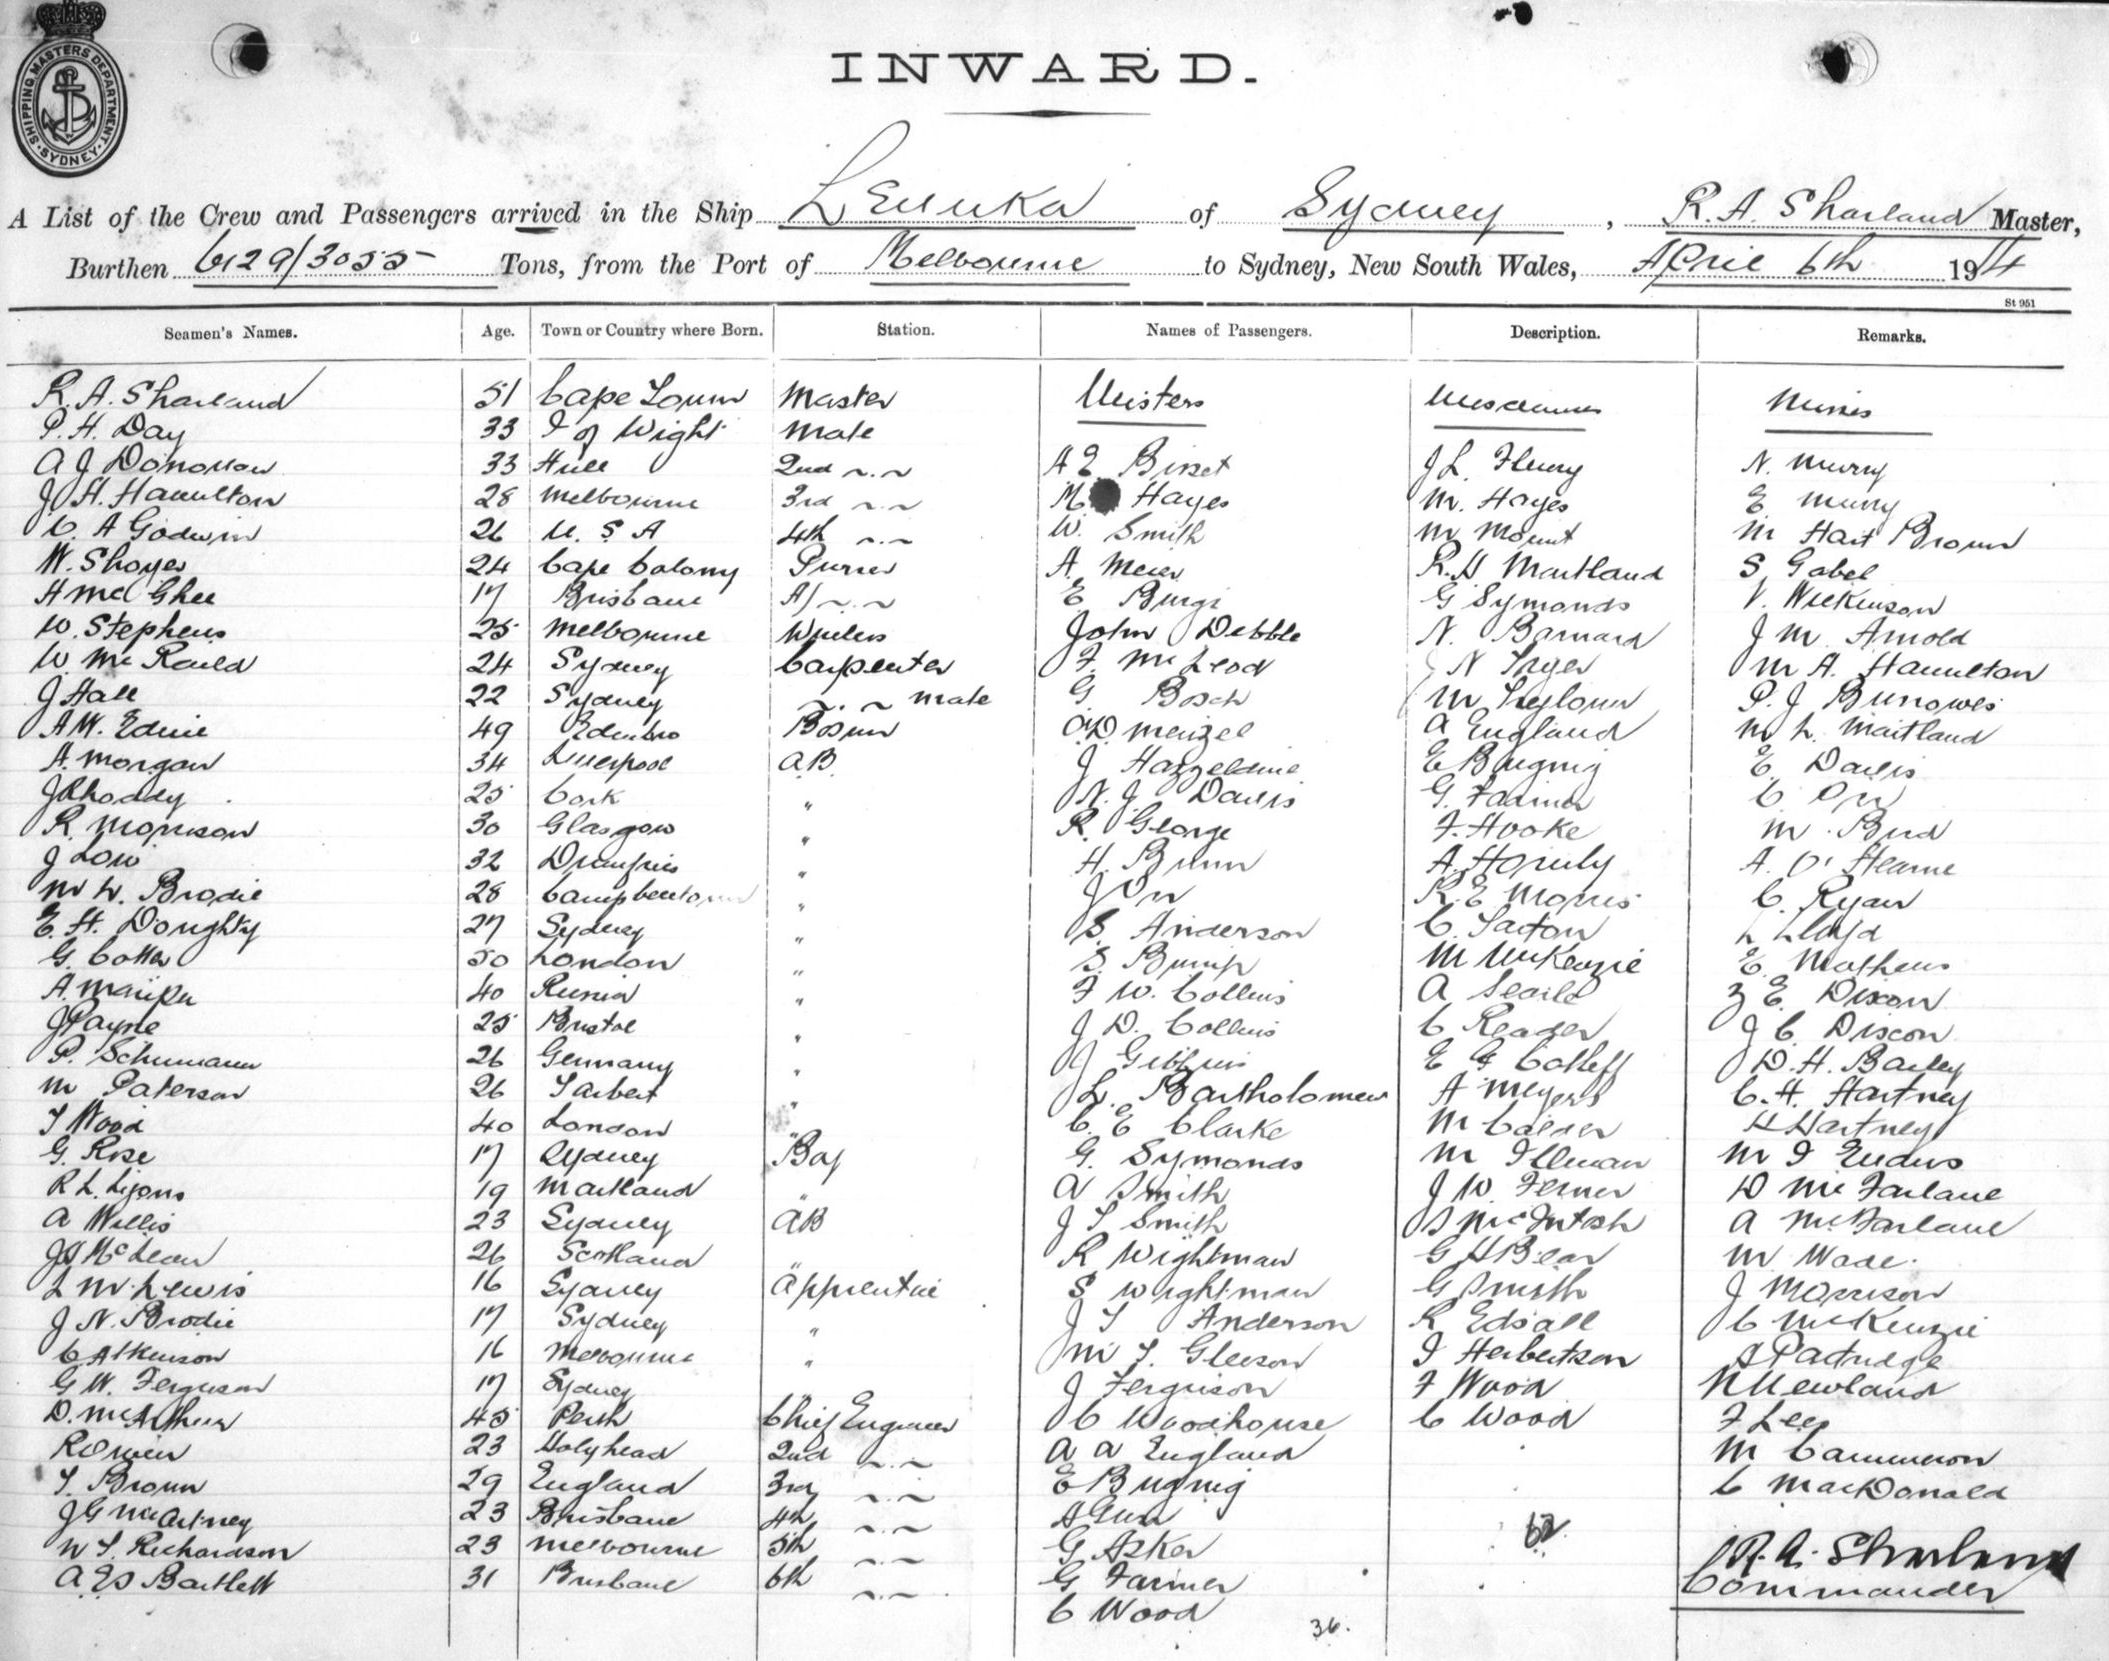 SHIPPING MASTERS DEPARTMENT SYDNEY
INWARD.
A List of the Crew and Passengers arrived in the Ship Levuka of Sydney, R.A. Sharland Master,
Burthen 6129/3055 Tons, from the Port of Melbourne to Sydney, New South Wales, April 6th 1914
St 951
Seamen's Names. Age. Town or Country where Born. Station. Names of Passengers. Description. Remarks.
R.A. Sharland 51 Cape Town Master Misters Mesdames Misses
P.H. Day 33 I of Wight Mate
A J Donovan 33 Hull 2nd ~.~ A E Bisset J L Fleury N. Murry
J H. Hamilton 28 Melbourne 3rd ~.~ M Hayes M. Hayes E Murry
C. A Godwin 26 U.S.A 4th ~.~ W. Smith M Mount M Hart Brown
W. Shoyer 24 Cape Colony Purser A. Meier R.H Maitland S Gabel
H McGhee 17 Brisbane A/ ~.~ E Burgi G Symonds V. Wilkinson
W. Stephens 25 Melbourne Wireless John Debble N. Barnard J M Arnold
W. Mc 24 Sydney Carpenter F. McLeod N Fryer M A. Hamilton
J Hall 22 Sydney ~.~ mate G Bosch M P. J Burrowes
A W. Edwie 49 Edinbro Bosun O.D Menzel A England M L. Maitland
A. Morgan 34 Liverpool A.B. J Hazzeldine E Bugnig E. Davis
J Rhoady 25 Cork " N. J. Davis G. Farmer C Orr
R. Morrison 30 Glasgow " R. George F. Hooke M. Bird
J Low 32 Dumfries " H. Brunn A. Hornly A. O'Hearne
M L. Brodie 28 Campbeltown " J Orr R. E Morris C. Ryan
E. H. Doughty 27 Sydney " S. Anderson C. Saxton L Lloyd
G. Cotter 50 London " S. Bump M McKenzie E. Mathews
A. 40 Russia " F W. Collins A Searle Z E. Dixon
J Payne 25 Bristol " J D. Collins C Reader J C. Dixon
P. Schumann 26 Germany " J Gibbins E G Catleff D. H. Bailey
M Paterson 26 Tarbert " L. Bartholomew A Meyers C. H. Hartney
T Wood 40 London " C. E Clarke M Calder H Hartney
G. Rose 17 Sydney Boy G. Symonds M Illman M I Endus
R L. Lyons 19 Maitland " A Smith J W. Ferner D McFarlane
A Willis 23 Sydney AB J T Smith S McIntosh A McFarlane
J S McLean 26 Scotland " R Wightman G H Bear M Wade.
L M. Lewis 16 Sydney Apprentice S Wightman G Smith J Morrison
J N. Brodie 17 Sydney " J T Anderson R Edsall C McKenzie
C Atkinson 16 Melbourne " M T. Gleeson I Herbertson A Patridge
G W. Ferguson 17 Sydney " J Ferguson F Wood N Newland
D. McArthur 45 Perth Chief Engineer C Woodhouse C Wood F Lees
R Owen 23 Holyhead 2nd ~.~ A A England M Cammeron
T. Brown 29 England 3rd ~.~ E Bugnig C MacDonald
J G McArtney 23 Brisbane 4th ~.~ A Gun
W T. Richardson 23 Melbourne 5th ~.~ G Asker R. A. Sharland
A E S Bartlett 31 Brisbane 6th ~.~ G Farmer Commander
C Wood 36.